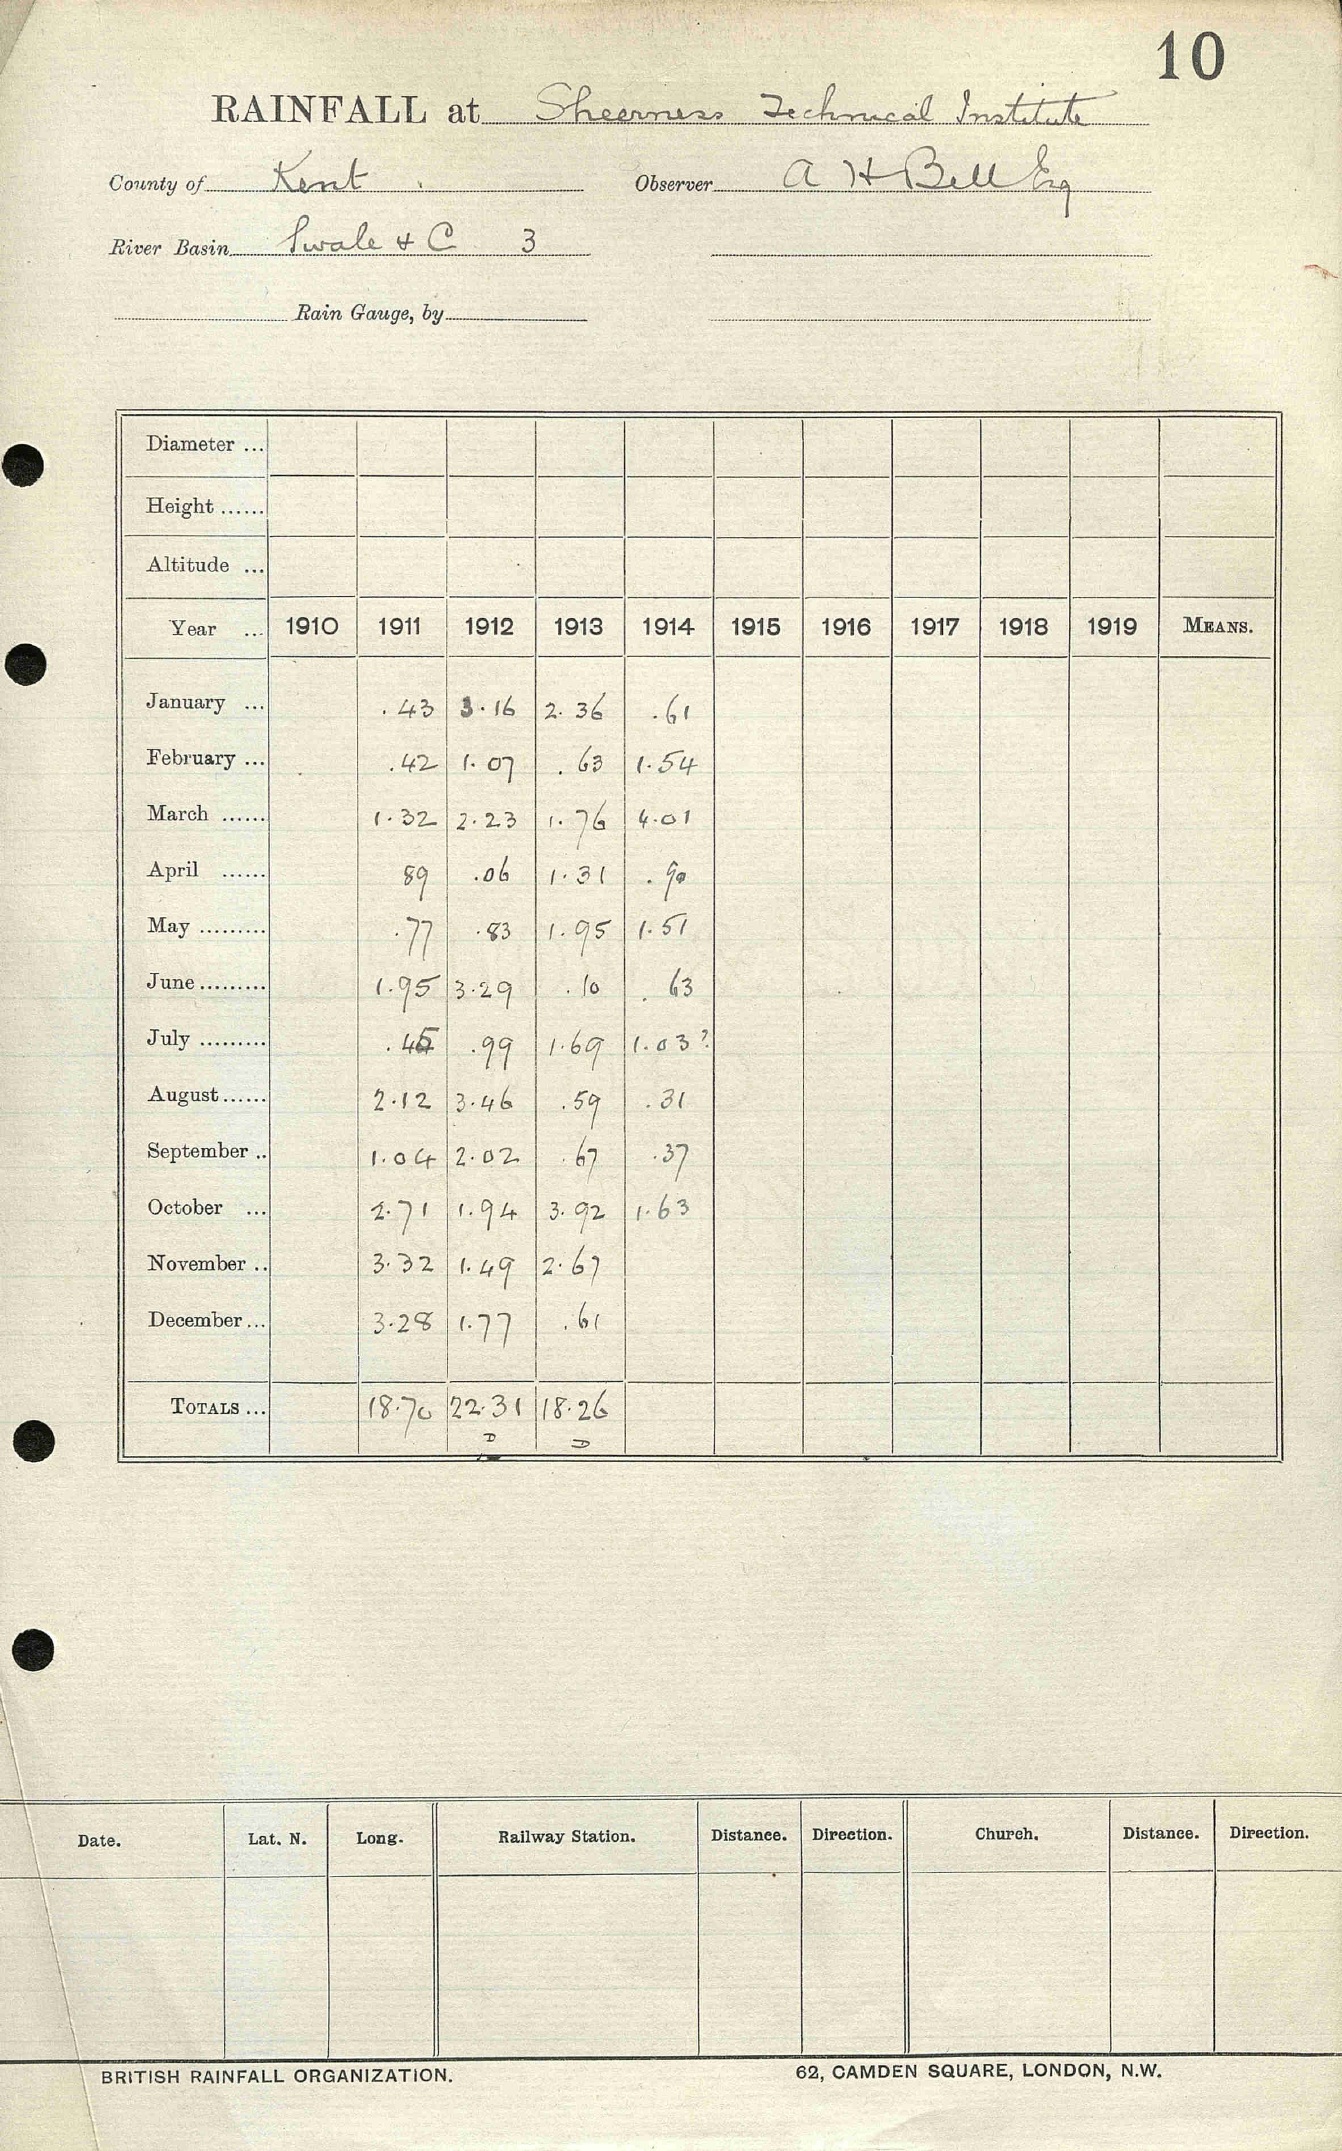 10
RAINFALL at Sheerness Technical Institute
County of Kent Observer A H Bell Esq
River Basin Swale & C 3
Rain Gauge, by
Diameter ...
Height ......
Altitude ...
Year ... 1910 1911 1912 1913 1914 1915 1916 1917 1918 1919 MEANS.
January ... .43 3.16 2.36 .61
February ... .42 1.07 .63 1.54
March ...... 1.32 2.23 1.76 4.01
April ...... 89 .06 1.31 .90
May ......... .77 .83 1.95 1.51
June ......... 1.95 3.29 .10 .63
July ......... .45 .99 1.69 1.03?
August ...... 2.12 3.46 .59 .31
September .. 1.04 2.02 .67 .37
October ... 2.71 1.94 3.92 1.63
November .. 3.32 1.49 2.67
December ... 3.28 1.77 .61
TOTALS ... 18.70 22.31 18.26
D D
Date. Lat. N. Long. Railway Station. Distance. Direction. Church. Distance. Direction.
BRITISH RAINFALL ORGANIZATION. 62, CAMDEN SQUARE, LONDON, N.W.